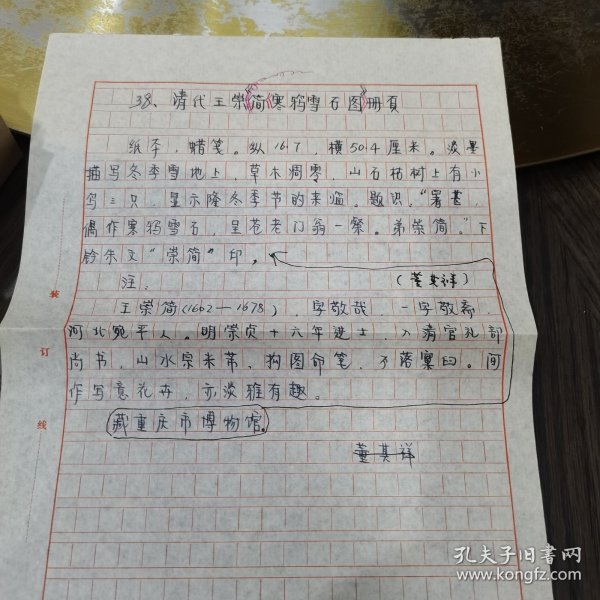 38、清代王崇简《寒鸦雪石图》册页
纸本,蜡笺。纵16.7,横50.4厘米。淡墨
描写冬季雪地上,草木凋零,山石枯树上有小
鸟三只,显示隆冬季节的来临。题识:“署甚,
偶作寒鸦雪石,呈苍老门翁一粲。弟崇简。”下
钤朱文“崇简”印。
(董其祥)
注:
王崇简(1602—1678),字敬哉,一字敬斋,
河北宛平人。明崇贞十六年进士,入清官礼部
尚书,山水宗米芾,构图命笔,不落窠臼。间
作写意花卉,亦淡雅有趣。
藏重庆市博物馆。
董其祥
装
订
线
孔夫子旧书网
www.kongfz.com